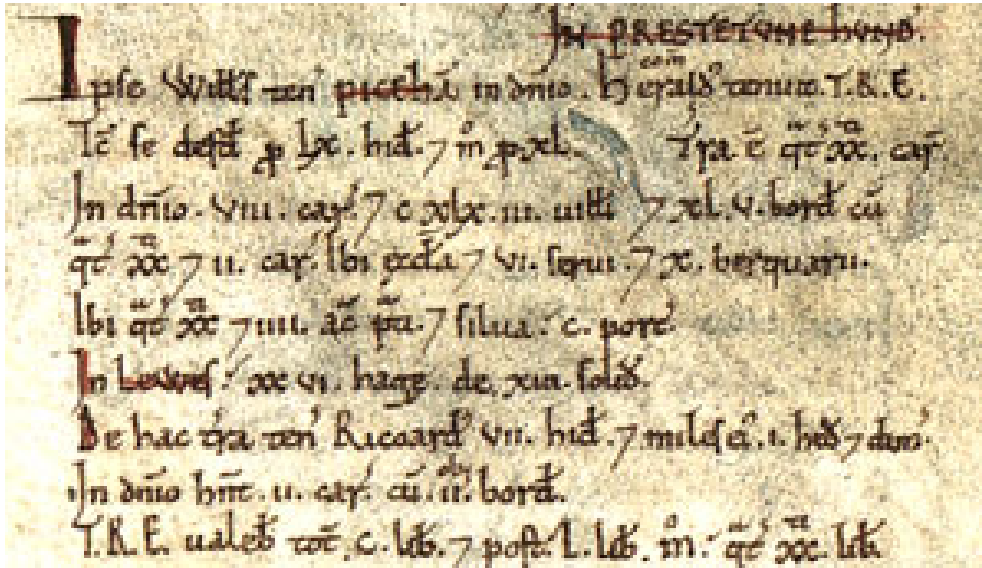 IN PRESTETUNE HUND'.
Ipse Wills ten' PICEHA in dnio. Herald' tenuit. T.R.E.
Tc se defd' p lx. hid. 7 m° p xl. Tra. ē qt xx. car.
In dnio. viii. car. 7 c xlx. iii. uilli 7 xl. v. bord cū
qt xx 7 ii. car. Ibi æccla 7 vi. serui. 7 x. berquarii.
Ibi qt xx 7 iiii. ac pti. 7 silua. c. porc.
In Lewes. xxvi. hagæ de xiii. solid.
De hac tra ten' Ricoard' vii. hid. 7 miles ei' i. hid 7 dim.
In dnio hnt. ii. car. cū. ii. bord.
T.R.E. ualeb tot. c. lib. 7 post. L. lib. m°. qt xx. lib